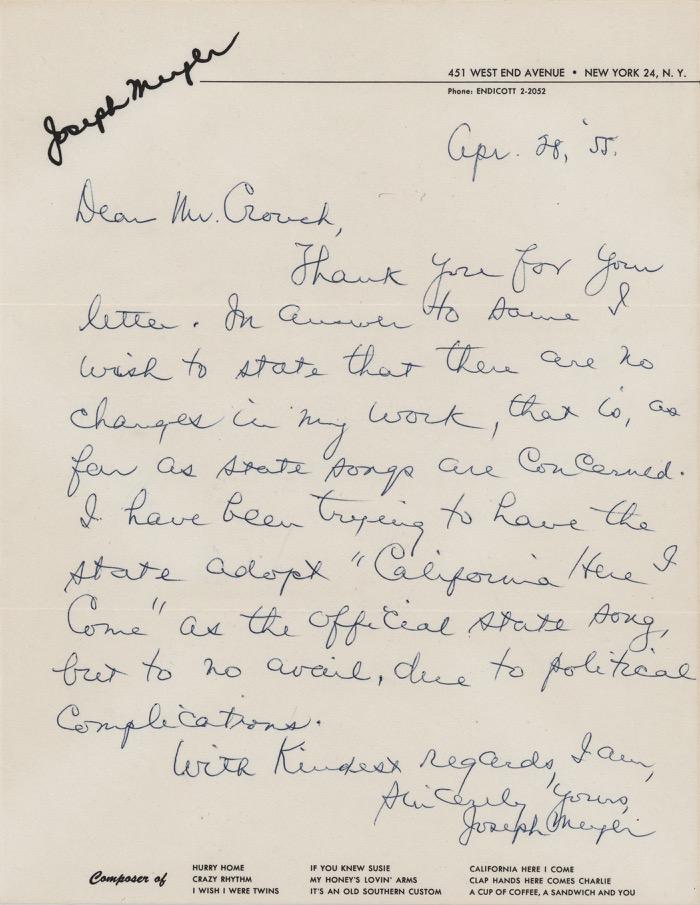 Joseph Meyer
451 WEST END AVENUE • NEW YORK 24, N. Y.
Phone: ENDICOTT 2-2052
Apr. 28, '55.
Dear Mr. Crouch,
Thank you for your
letter. In answer to same I
wish to state that there are no
changes in my work, that is, as
far as state songs are concerned.
I have been trying to have the
state adopt "California Here I
Come" as the official state song,
but to no avail, due to political
complications.
With kindest regards, I am,
Sincerely yours,
Joseph Meyer
Composer of
HURRY HOME
CRAZY RHYTHM
I WISH I WERE TWINS
IF YOU KNEW SUSIE
MY HONEY'S LOVIN' ARMS
IT'S AN OLD SOUTHERN CUSTOM
CALIFORNIA HERE I COME
CLAP HANDS HERE COMES CHARLIE
A CUP OF COFFEE, A SANDWICH AND YOU